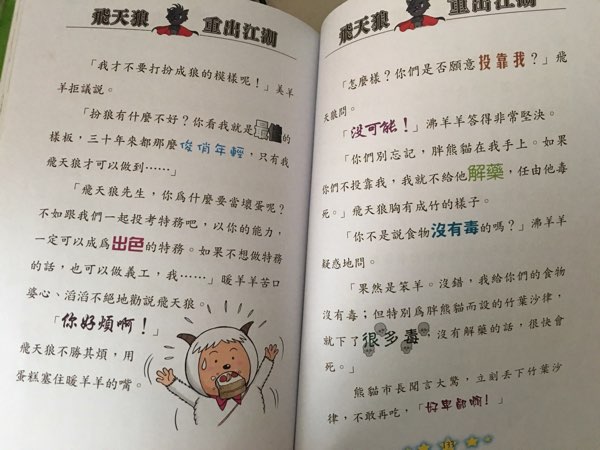 飛天狼 重出江湖
「我才不要打扮成狼的模樣呢！」美羊
羊拒議說。
「扮狼有什麼不好？你看我就是 的
樣板，三十年來都那麼俊俏年輕，只有我
飛天狼才可以做到⋯⋯」
「飛天狼先生，你為什麼要當壞蛋呢？
不如跟我們一起投考特務吧，以你的能力，
一定可以成為出色的特務。如果不想做特務
的話，也可以做義工，我⋯⋯」暖羊羊苦口
婆心、滔滔不絕地勸說飛天狼。
「你好煩啊！」
飛天狼不勝其煩，用
蛋糕塞住暖羊羊的嘴。
飛天狼 重出江湖
「怎麼樣？你們是否願意投靠我？」飛
天狼問。
「沒可能！」沸羊羊答得非常堅決。
「你們別忘記，胖熊貓在我手上。如果
你們不投靠我，我就不給他解藥，任由他毒
死。」飛天狼胸有成竹的樣子。
「你不是說食物沒有毒的嗎？」沸羊羊
疑惑地問。
「果然是笨羊。沒錯，我給你們的食物
沒有毒；但特別為胖熊貓而設的竹葉沙律，
就下了很多毒，沒有解藥的話，很快會
死。」
熊貓市長聞言大驚，立刻丟下竹葉沙
律，不敢再吃，「好卑鄙啊！」